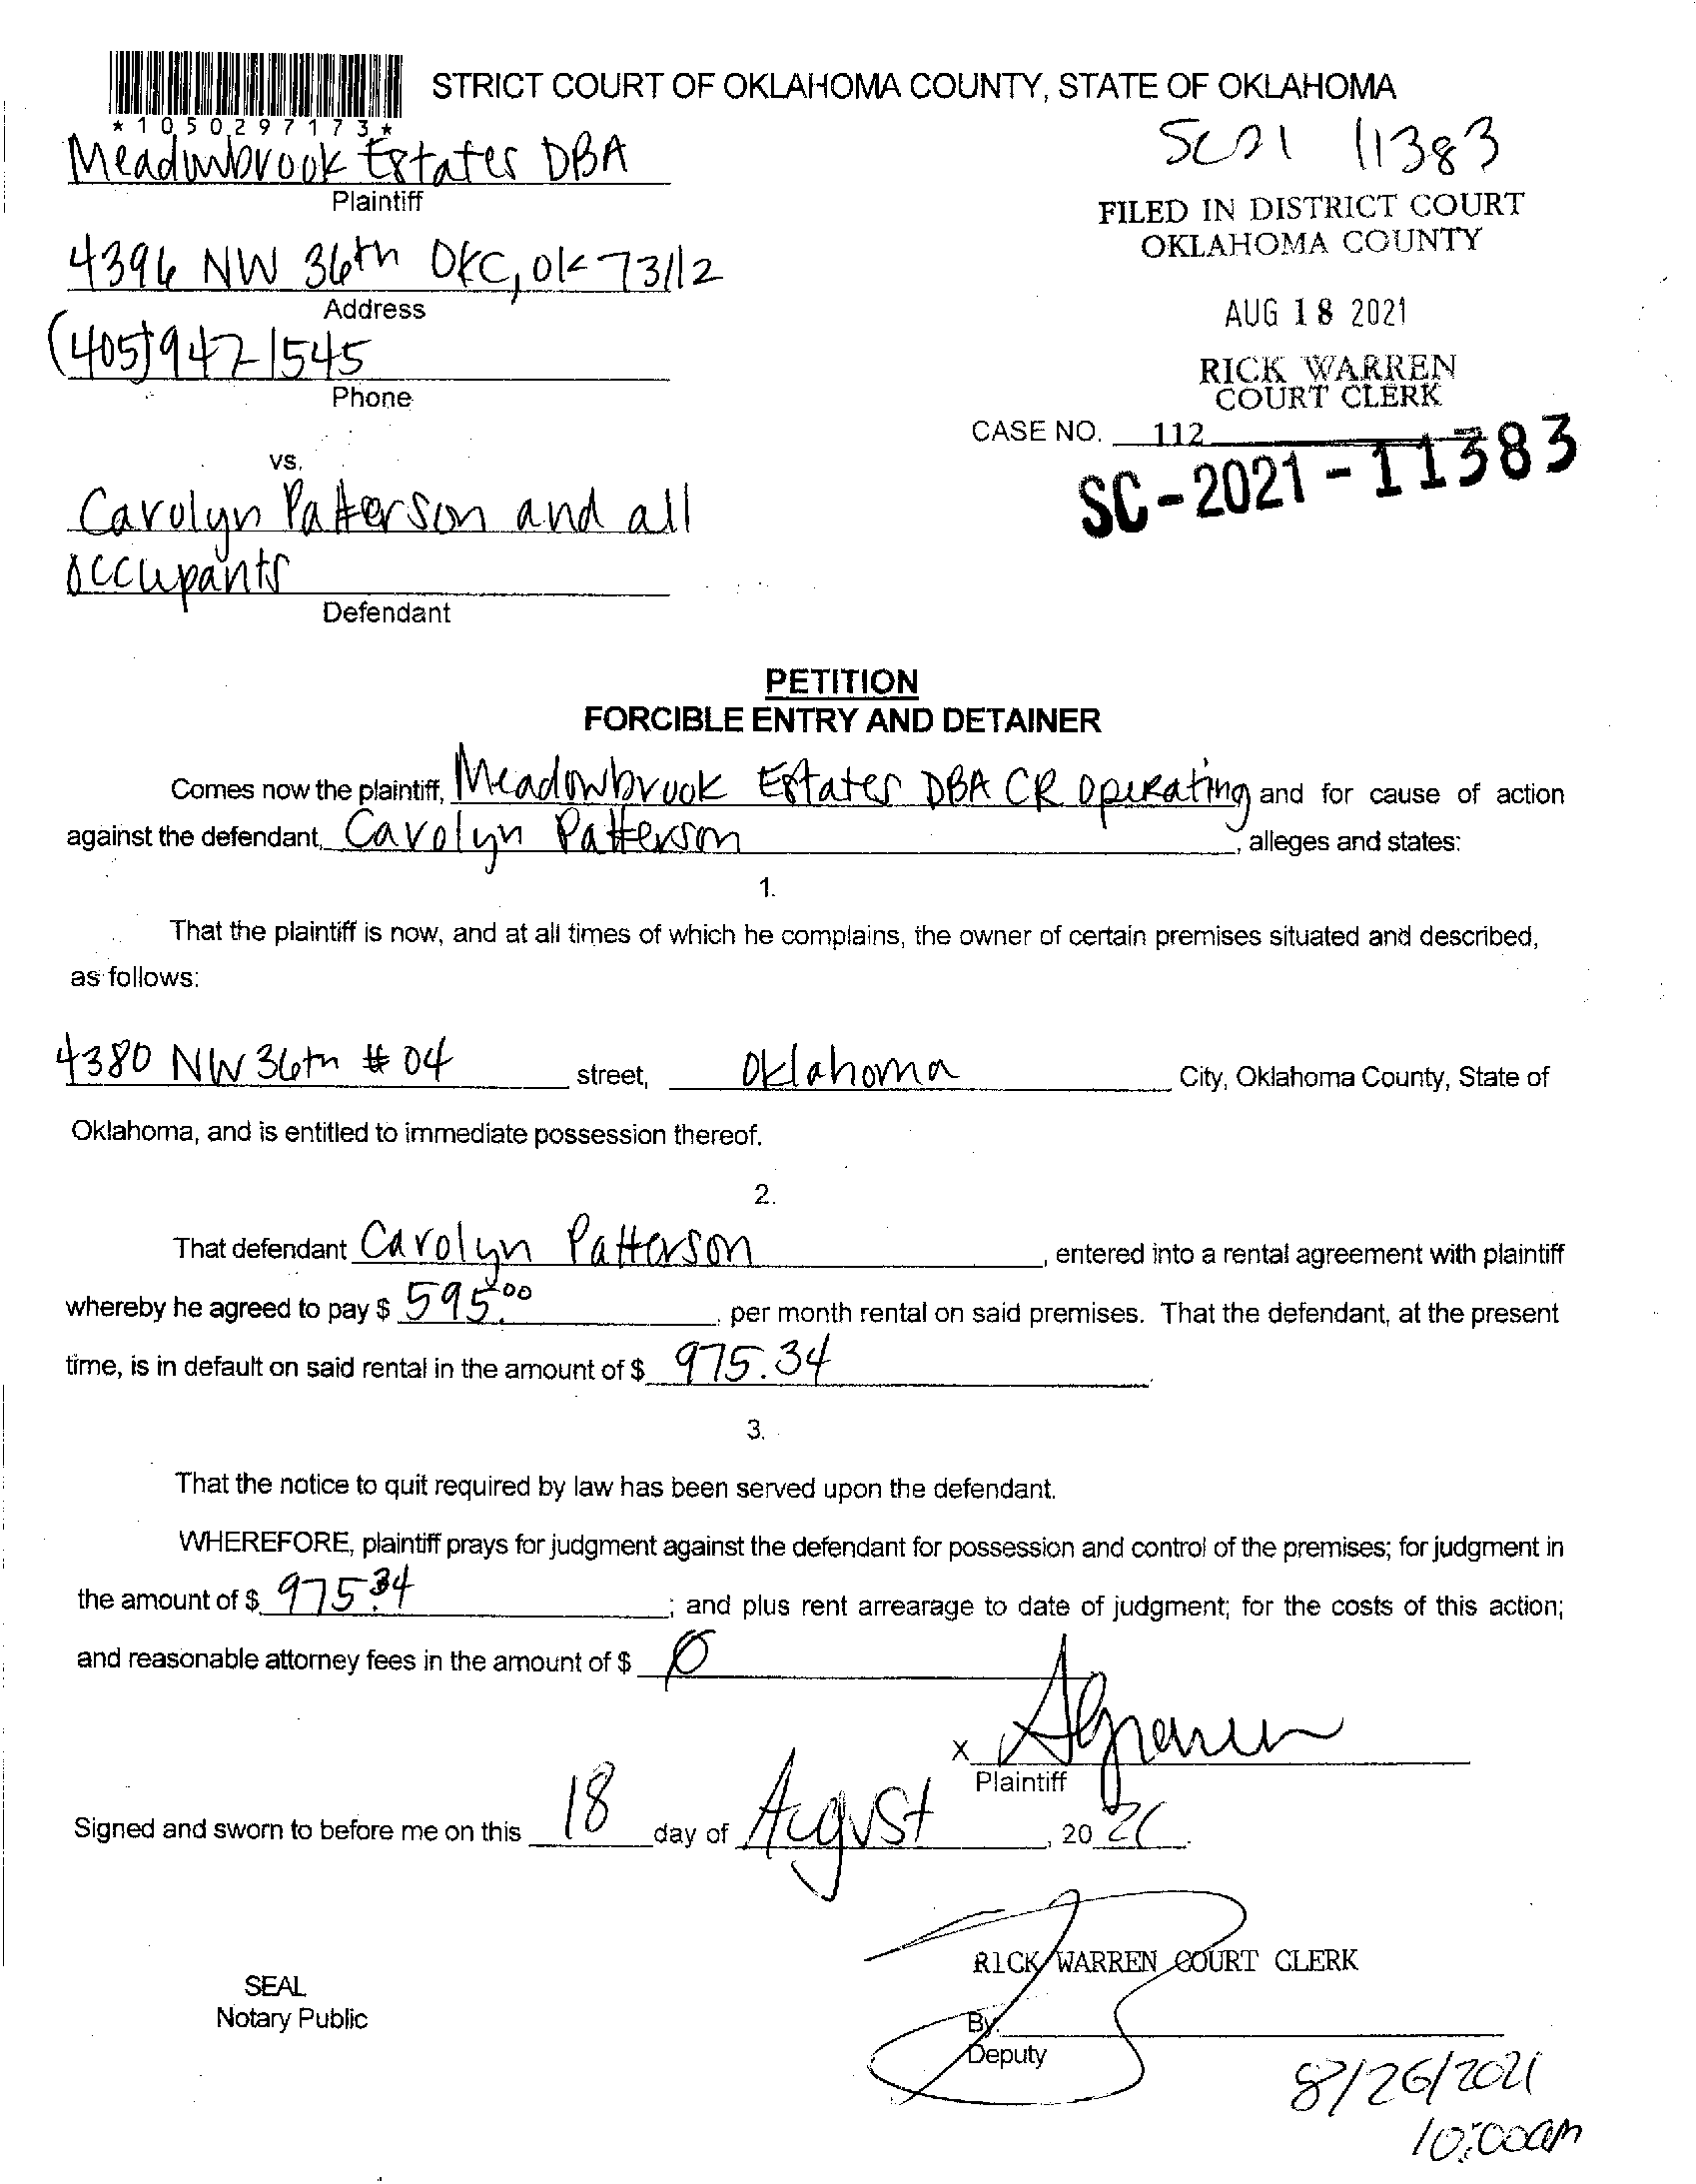 STRICT COURT OF OKLAHOMA COUNTY, STATE OF OKLAHOMA
*1050297173*
SC21 11383
Meadowbrook Estates DBA
Plaintiff
FILED IN DISTRICT COURT
OKLAHOMA COUNTY
4396 NW 36th OKC, OK 73112
Address
AUG 18 2021
(405) 947-1545
Phone
RICK WARREN
COURT CLERK
CASE NO. 112
SC-2021-11383
vs.
Carolyn Patterson and all
occupants
Defendant
PETITION
FORCIBLE ENTRY AND DETAINER
Comes now the plaintiff, Meadowbrook Estates DBA CR Operating and for cause of action
against the defendant, Carolyn Patterson, alleges and states:
1.
That the plaintiff is now, and at all times of which he complains, the owner of certain premises situated and described,
as follows:
4380 NW 36th # 04 street, Oklahoma City, Oklahoma County, State of
Oklahoma, and is entitled to immediate possession thereof.
2.
That defendant Carolyn Patterson, entered into a rental agreement with plaintiff
whereby he agreed to pay $ 595.00, per month rental on said premises. That the defendant, at the present
time, is in default on said rental in the amount of $ 975.34.
3.
That the notice to quit required by law has been served upon the defendant.
WHEREFORE, plaintiff prays for judgment against the defendant for possession and control of the premises; for judgment in
the amount of $ 975.34; and plus rent arrearage to date of judgment; for the costs of this action;
and reasonable attorney fees in the amount of $ 0
X
Plaintiff
Signed and sworn to before me on this 18 day of August, 20 21.
RICK WARREN COURT CLERK
SEAL
Notary Public
By.
Deputy
8/26/2021
10:00am